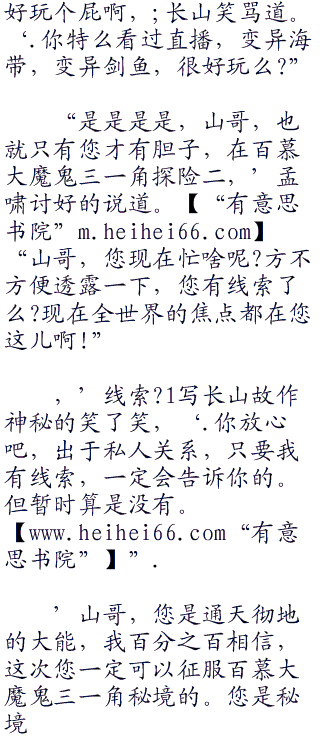 好玩个屁啊，;长山笑骂道。
‘.你特么看过直播，变异海
带，变异剑鱼，很好玩么?”
“是是是是，山哥，也
就只有您才有胆子，在百慕
大魔鬼三一角探险二，’孟
啸讨好的说道。【“有意思
书院”m.heihei66.com】
“山哥，您现在忙啥呢?方不
方便透露一下，您有线索了
么?现在全世界的焦点都在您
这儿啊!”
，’线索?1写长山故作
神秘的笑了笑，‘.你放心
吧，出于私人关系，只要我
有线索，一定会告诉你的。
但暂时算是没有。
【www.heihei66.com“有意
思书院”】”.
’山哥，您是通天彻地
的大能，我百分之百相信，
这次您一定可以征服百慕大
魔鬼三一角秘境的。您是秘
境